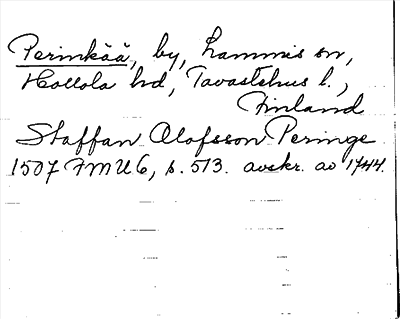 Perinkää, by, Lammis sn,
Hollola hd, Tavastehus l.,
Finland
Staffan Olofsson Peringe
1507 FMU 6, s. 513. avskr. av 1744.